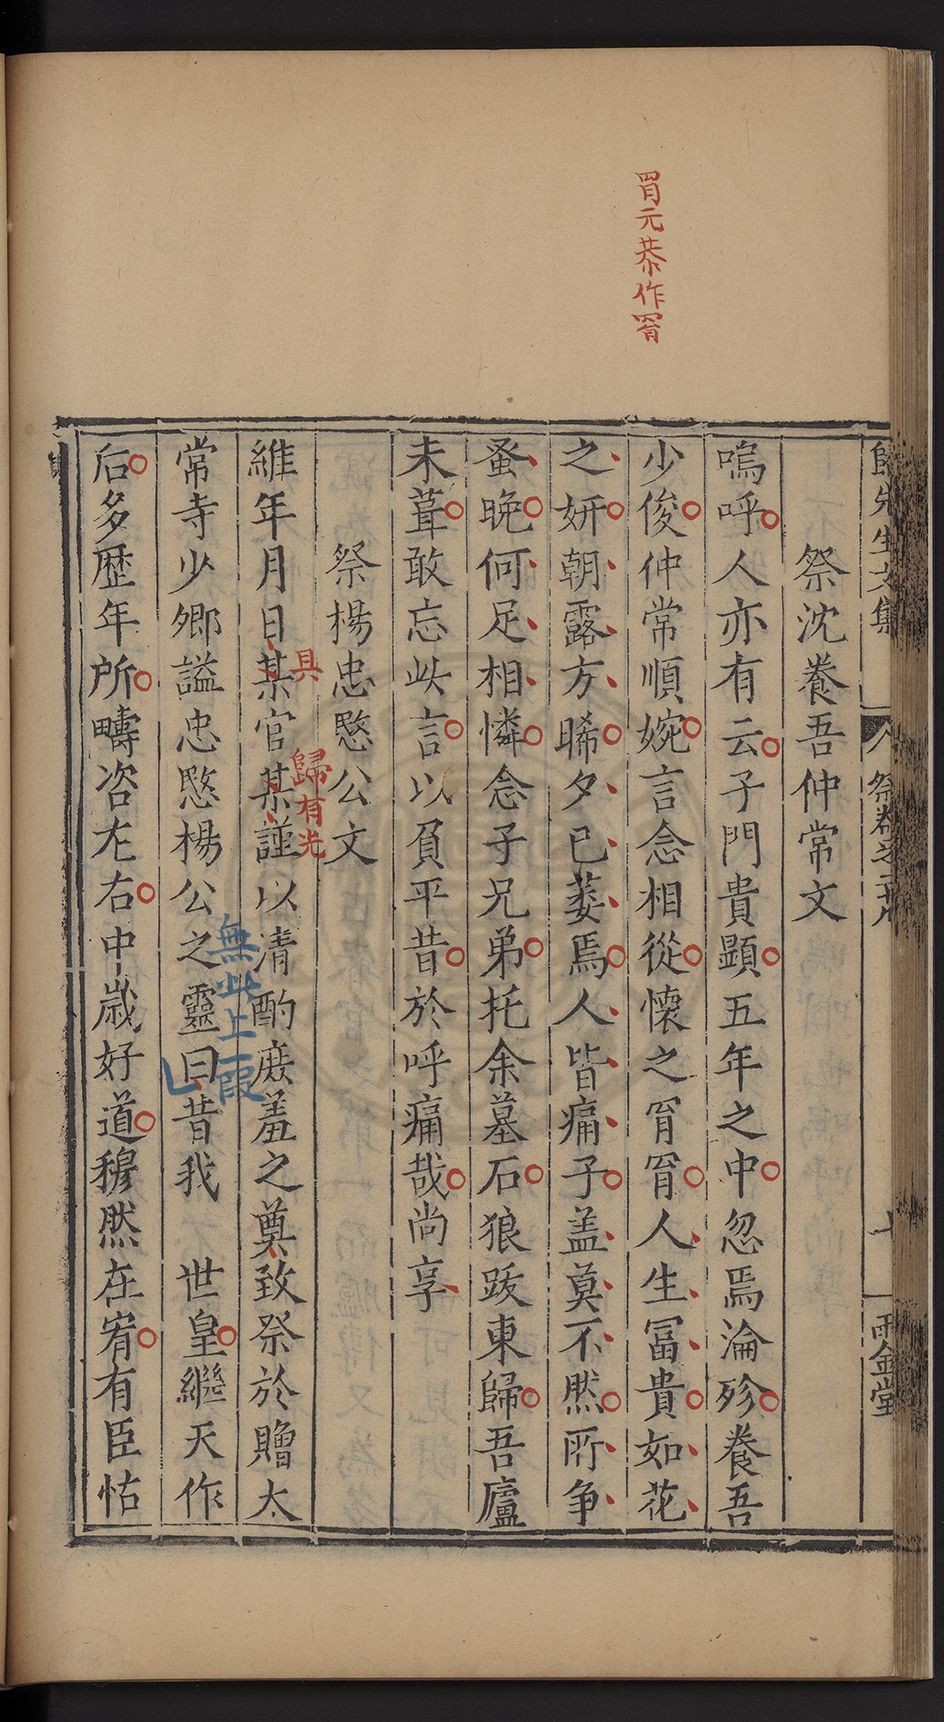 胷元恭作胷
祭沈養吾仲常文
嗚呼人亦有云子門貴顕五年之中忽焉淪殄養吾
少俊仲常順婉言念相從懷之胷胷人生冨貴如花
之妍朝露方晞夕已萎焉人皆痛子盖莫不然所争
蚤晚何足相憐念子兄弟托余墓石狼跋東歸吾廬
未葺敢忘此言以負平昔於呼痛哉尚享
祭楊忠愍公文
維年月日某官某謹以清酌庻羞之奠致祭於贈太
具
歸有光
常寺少卿謚忠愍楊公之靈曰昔我 世皇繼天作
無此上一段
后多歴年所疇咨左右中歲好道穆然在宥有臣怙
歸先生文集
雨金堂